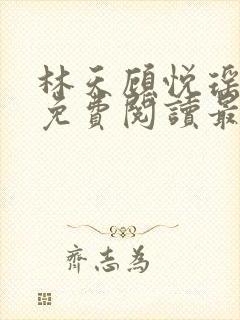 林天顾悦瑶
免費閱讀最
齊志為